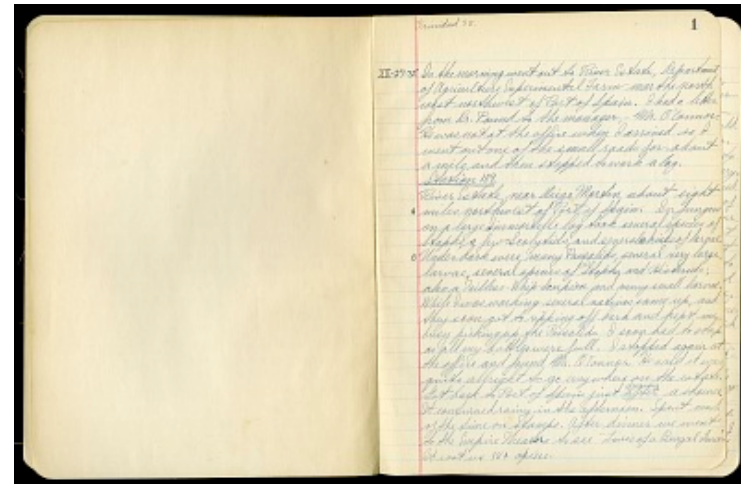 Trinidad 35.
1
XII-27-35 In the morning went out to River Estate, Department
of Agriculture Experimental Farm near the north
west northwest of Port of Spain. I had a letter
from Dr. Pound to the manager, Mr. O'Connor.
He was not at the office when I arrived so I
went out one of the small roads for about
a mile and then stopped to work a log.
Station 189
River Estate, near Diego Martin, about eight
miles northwest of Port of Spain. In fungus
on a large log took several species of
Staphs, a few Scolytids, and
Under bark were many Passalids, several very large
larvae, several species of Staphs and Histerids;
also a whip scorpion and many small larvae.
While I was working several natives came up, and
they soon got to ripping off bark and kept me
busy picking up the Passalids. I soon had to stop
as all my bottles were full. I stopped again at
the office and found Mr. O'Connor. He said it was
quite allright to go anywhere on the estate.
Got back to Port of Spain just after a shower.
It continued rainy in the afternoon. Spent most
of the time on stamps. After dinner we went
to the Empire Theatre to see Lives of a Bengal Lancer
It cost us apiece.